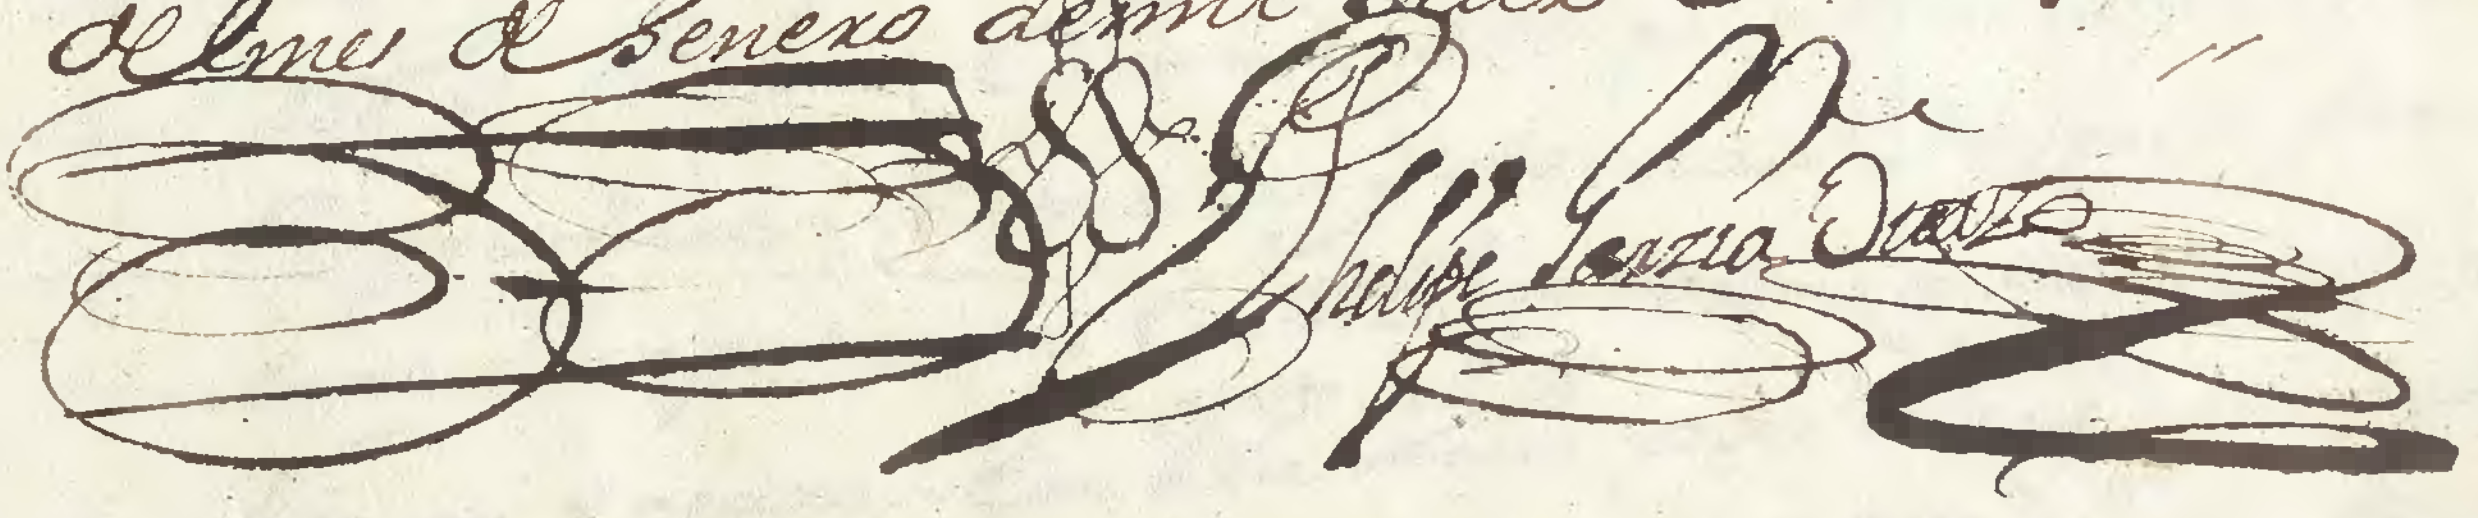 del mes de henero de mil
Phelipe Garzia Suazo